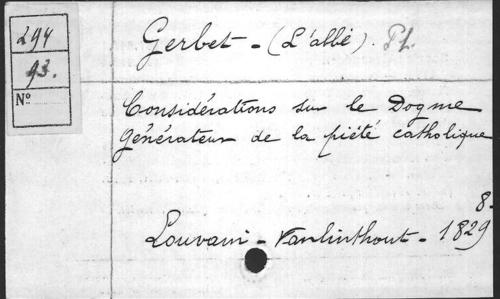 294
93.
Nº
Gerbet - (L'abbé). Ph.
Considérations sur le Dogme
Générateur de la piété catholique
8.
Louvain - Vanlinthout - 1829